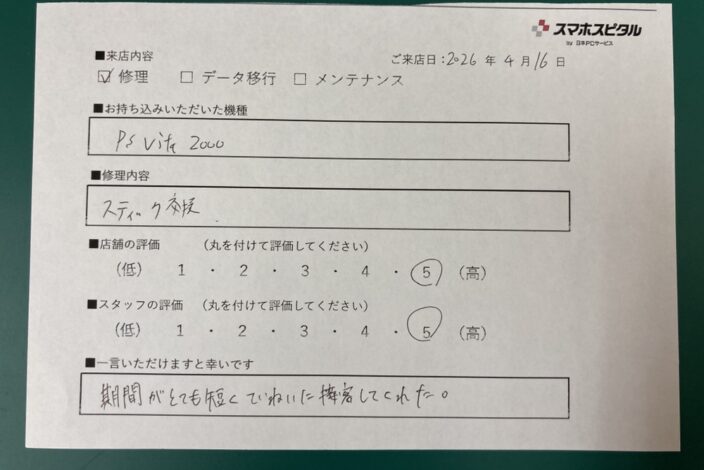 スマホスピタル
by 日本PCサービス
■来店内容
ご来店日：2026 年 4 月 16 日
☑ 修理 □ データ移行 □ メンテナンス
■お持ち込みいただいた機種
PS Vita 2000
■修理内容
スティック交換
■店舗の評価 （丸を付けて評価してください）
（低） 1 ・ 2 ・ 3 ・ 4 ・ 5 （高）
■スタッフの評価 （丸を付けて評価してください）
（低） 1 ・ 2 ・ 3 ・ 4 ・ 5 （高）
■一言いただけますと幸いです
期間がとても短くていねいに接客してくれた。